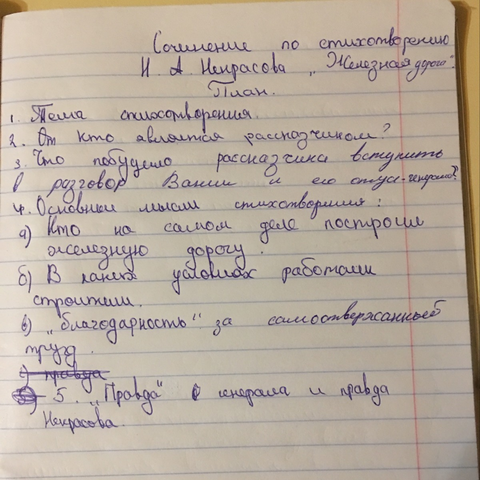 Сочинение по стихотворению
Н. А. Некрасова „Железная дорога".
План.
1. Тема стихотворения.
2. От кто является рассказчиком?
3. Что побудело рассказчика вступить
в разговор Вани и его отца-генерала?
4. Основные мысли стихотворения:
а) Кто на самом деле построил
железную дорогу.
б) В каких условиях работали
строители.
в) „благодарность" за самоотверженный
труд.
г) правда
5. „Правда" генерала и правда
Некрасова.